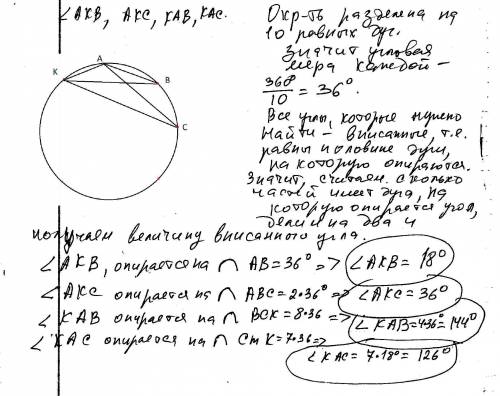 ∠AKB, AKC, KAB, KAC.
Окр-ть разделена на
10 равных дуг.
Значит угловая
мера каждой –
360°/10 = 36°.
Все углы, которые нужно
найти – вписанные, т.е.
равны половине дуги,
на которую опираются.
Значит, считаем сколько
частей имеет дуга, на
которую опирается угол,
делим на два и
получаем величину вписанного угла.
K A B C
∠AKB, опирается на ∩ AB = 36° => ∠AKB = 18°
∠AKC опирается на ∩ ABC = 2·36° => ∠AKC = 36°
∠KAB опирается на ∩ BCK = 8·36 => ∠KAB = 4·36° = 144°
∠KAC опирается на ∩ CmK = 7·36 =>
∠KAC = 7·18° = 126°